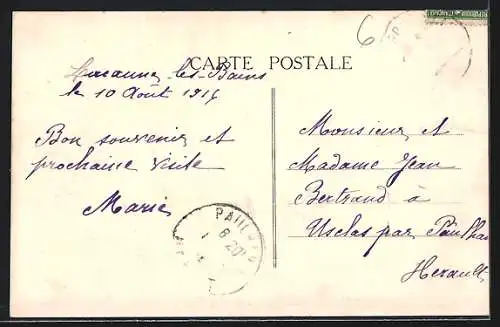 6
CARTE POSTALE
Lacaune les-Bains
le 10 Août 1914
Bon souvenir et
prochaine visite
Marie
Monsieur et
Madame Jean
Bertrand à
Usclas par Paulhan
Herault
PAULHAN
6 20